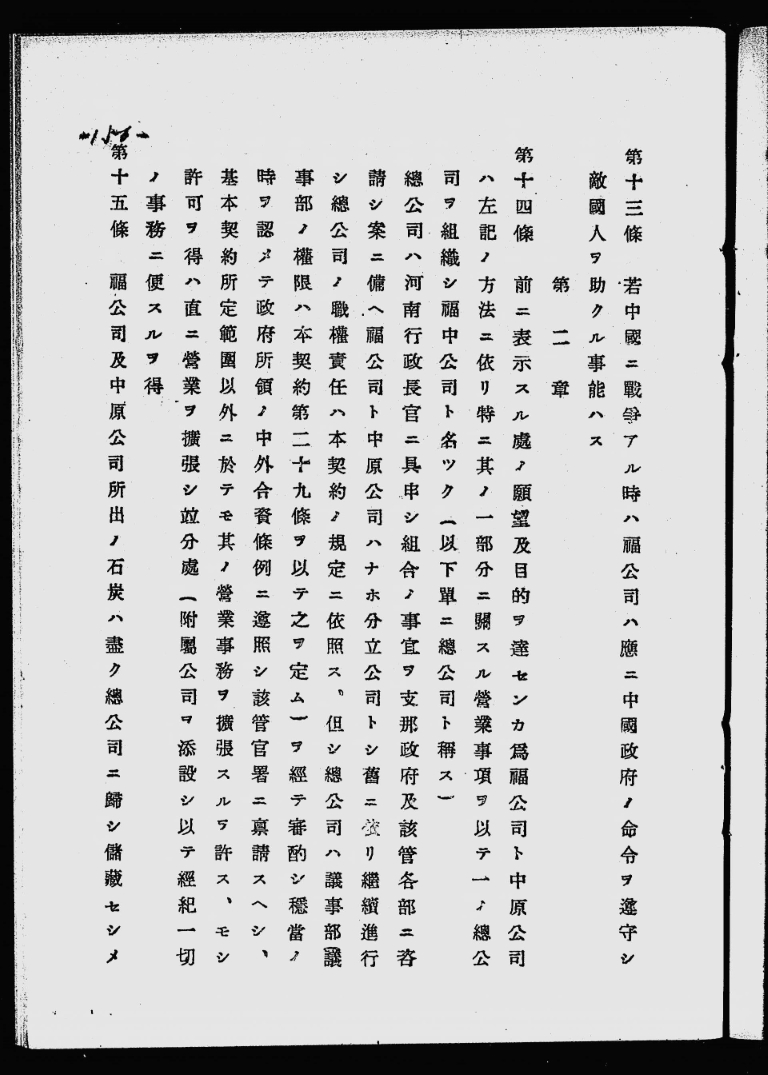 第十三條　若中國ニ戰爭アル時ハ福公司ハ應ニ中國政府ノ命令ヲ遵守シ
敵國人ヲ助クル事能ハス
第二章
第十四條　前ニ表示スル處ノ願望及目的ヲ達センカ爲福公司ト中原公司
ハ左記ノ方法ニ依リ特ニ其ノ一部分ニ關スル營業事項ヲ以テ一ノ總公
司ヲ組織シ福中公司ト名ツク（以下單ニ總公司ト稱ス）
總公司ハ河南行政長官ニ具申シ組合ノ事宜ヲ支那政府及該管各部ニ咨
請シ案ニ備ヘ福公司ト中原公司ハナホ分立公司トシ舊ニ依リ繼續進行
シ總公司ノ職權責任ハ本契約ノ規定ニ依照ス、但シ總公司ハ議事部（議
事部ノ權限ハ本契約第二十九條ヲ以テ之ヲ定ム）ヲ經テ審酌シ穩當ノ
時ヲ認メテ政府所領ノ中外合資條例ニ遵照シ該管官署ニ禀請スヘシ、
基本契約所定範圍以外ニ於テモ其ノ營業事務ヲ擴張スルヲ許ス、モシ
許可ヲ得ハ直ニ營業ヲ擴張シ竝分處（附屬公司ヲ添設シ以テ經紀一切
ノ事務ニ便スルヲ得
第十五條　福公司及中原公司所出ノ石炭ハ盡ク總公司ニ歸シ儲藏セシメ
-156-